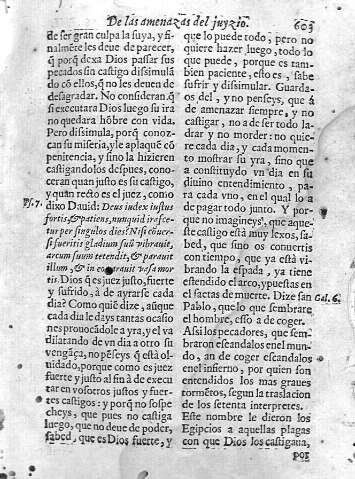 De las amenazas del juyzio.
603
de ser gran culpa la suya, y fi-
nalmẽte les deue de parecer,
q̃ porq̃ dexa Dios passar sus
pecados sin castigo dissimulã
do cõ ellos, q̃ no les deuen de
desagradar. No consideran q̃
si executara Dios luego su ira
no quedara hõbre con vida.
Pero dissimula, porq̃ conoz-
can su miseria, y le aplaquẽ cõ
penitencia, y sino la hizieren
castigandolos despues, cono-
ceran quan justo es su castigo,
y quan recto es el juez, como
Ps. 7.
dixo Dauid: Deus index iustus
fortis, & patiens, nunquid irasce-
tur per singulos dies? Nisi cõuer-
si fueritis gladium suũ vibrauit,
arcum suum tetendit, & parauit
illum, & in eo parauit vasa mor
tis. Dios q̃ es juez justo, fuerte
y sufrido, a de ayrarse cada
dia? Como quiẽ dize, aunque
cada dia le days tantas ocasio
nes prouocãdole a yra, y el va
dilatando de vn dia a otro su
vengãça, no pẽseys q̃ està ol-
uidado, porque como es juez
fuerte y justo al fin à de execu
tar en vosotros justos y fuer-
tes castigos: y porq̃ no sospe
cheys, que pues no castiga
luego, que no deue de poder,
sabed, que es Dios fuerte, y
que lo puede todo, pero no
quiere hazer luego, todo lo
que puede, porque es tam-
bien paciente, esto es, sabe
sufrir y dissimular. Guarda-
os del, y no penseys, que á
de amenazar siempre, y no
castigar, no a de ser todo la-
drar y no morder: no quie-
re cada dia, y cada momen-
to mostrar su yra, sino que
a constituydo vn dia en su
diuino entendimiento, pa-
ra cada vno, en el qual lo a
de pagar todo junto. Y por-
que no imagineys, que aque-
ste castigo està muy lexos, sa-
bed, que sino os conuertis
con tiempo, que ya està vi-
brando la espada, ya tiene
estendido el arco, y puestas en
el saetas de muerte. Dize san
Gal. 6.
Pablo, que lo que sembrare
el hombre, esso a de coger.
Assi los pecadores, que sem-
braron escandalos en el mun-
do, an de coger escandalos
en el infierno, por quien son
entendidos los mas graues
tormẽtos, segun la traslacion
de los setenta interpretes.
Este nombre le dieron los
Egipcios a aquellas plagas
con que Dios los castigaua,
por